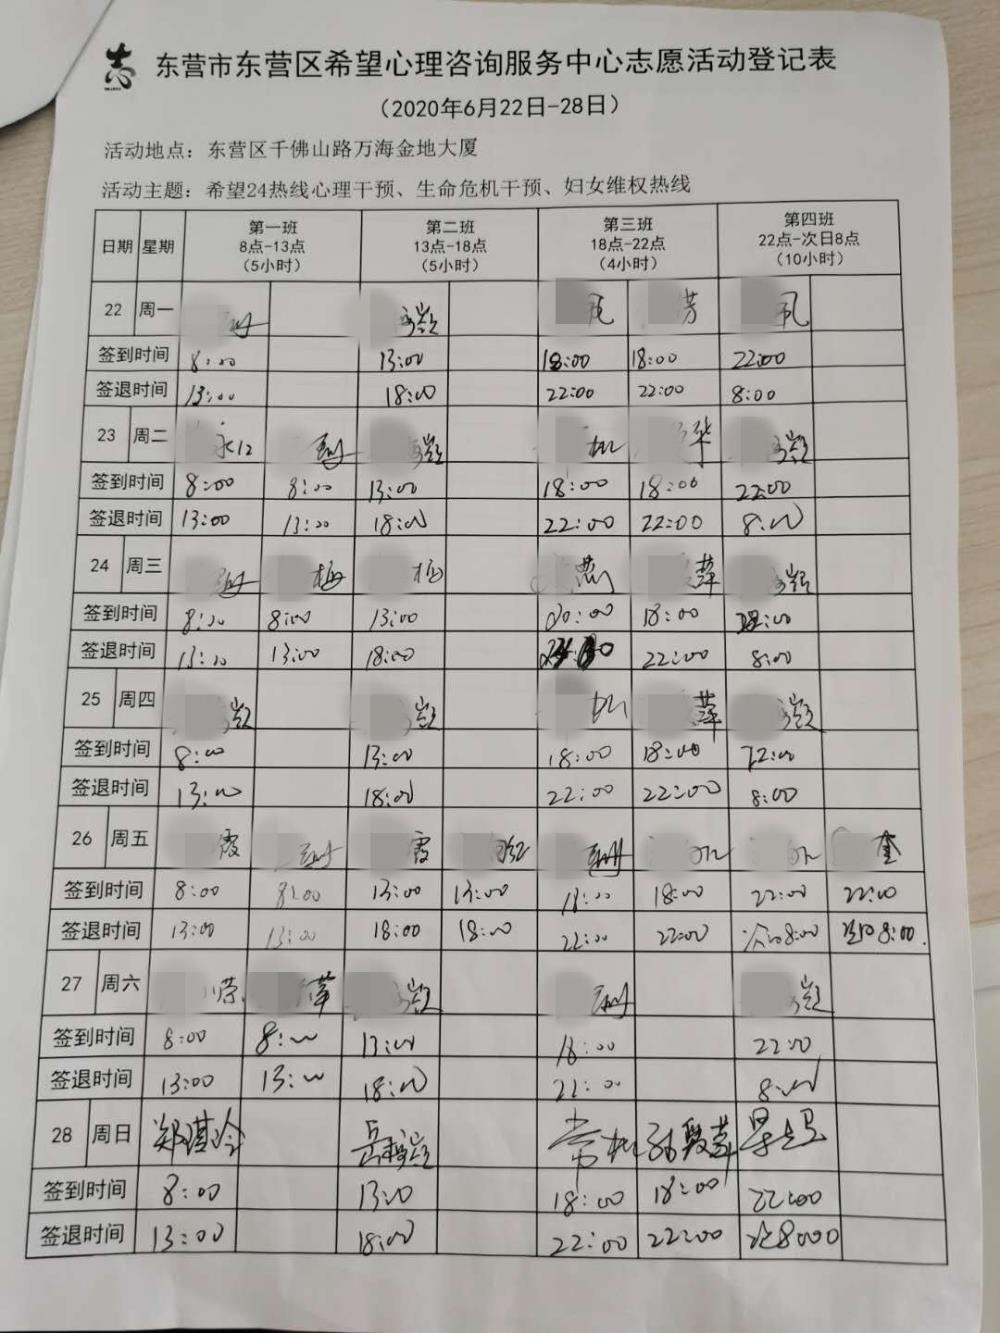 志
东营市东营区希望心理咨询服务中心志愿活动登记表
（2020年6月22日-28日）
活动地点：东营区千佛山路万海金地大厦
活动主题：希望24热线心理干预、生命危机干预、妇女维权热线
日期 星期 第一班 8点-13点 （5小时） 第二班 13点-18点 （5小时） 第三班 18点-22点 （4小时） 第四班 22点-次日8点 （10小时）
22 周一 芳
签到时间 8:00 13:00 18:00 18:00 22:00
签退时间 13:00 18:00 22:00 22:00 8:00
23 周二 华
签到时间 8:00 8:00 13:00 18:00 18:00 22:00
签退时间 13:00 13:00 18:00 22:00 22:00 8:00
24 周三 梅 梅 萍
签到时间 8:00 8:00 13:00 18:00
签退时间 13:00 13:00 18:00 22:00 8:00
25 周四 萍
签到时间 8:00 13:00 18:00 18:00 22:00
签退时间 13:00 18:00 22:00 22:00 8:00
26 周五 霞 霞 奎
签到时间 8:00 8:00 13:00 13:00 18:00 18:00 22:00 22:00
签退时间 13:00 13:00 18:00 18:00 22:00 22:00 次日8:00 次日8:00.
27 周六 荣 萍
签到时间 8:00 8:00 13:00 18:00 22:00
签退时间 13:00 13:00 18:00 22:00 8:00
28 周日 郑琪玲
签到时间 8:00 13:00 18:00 18:00 22:00
签退时间 13:00 18:00 22:00 22:00